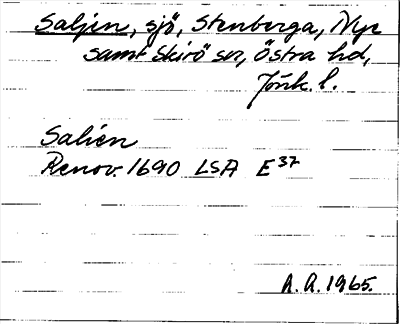 Saljen, sjö, Stenberga, Nye
samt Skirö snr, Östra hd,
Jönk. l.
Salien
Renov. 1690 LSA E37
A. A. 1965.